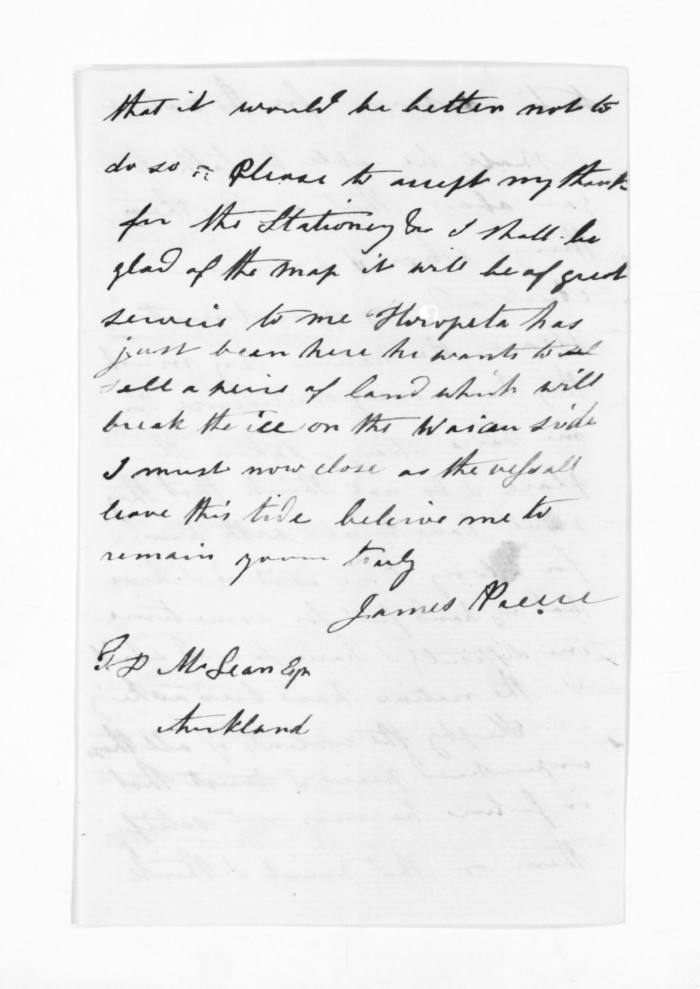 that it would be better not to
do so Please to accept my thank
for the Stationey &c I shall be
glad of the map it will be of great
serveis to me Horopeta has
just bean here he wants to sel
sell a peice of land which will
break the ice on the Waicu side
I must now close as the vessall
leave this tide beleive me to
remain yours truly
James
D McLean Esqr
Auckland